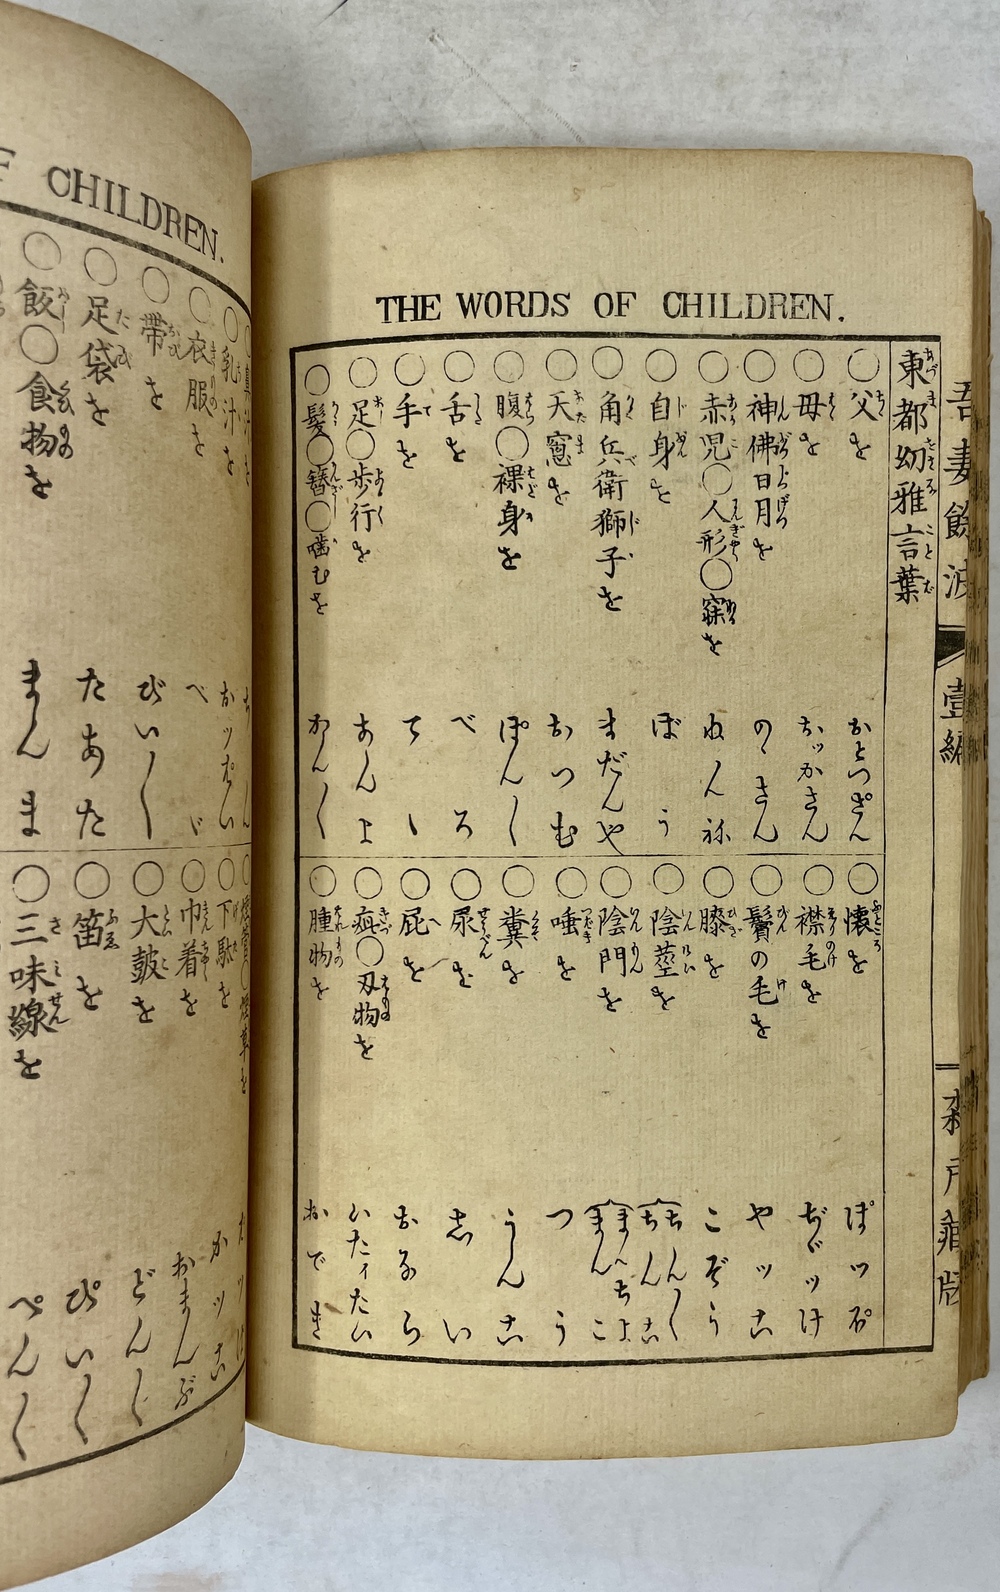 THE WORDS OF CHILDREN.
東都幼雅言葉
あづまをさなことば
○父を おとつさん
○母を おッかさん
○神佛日月を のゝさん
○赤児○人形○寐を ねん祢
○自身を ぼう
○角兵衛獅子を まだんや
○天窓を おつむ
○腹○裸身を ぽん〱
○舌を べろ
○手を てゝ
○足○歩行を あんよ
○髪○簪○噛むを かん〱
○懐を ぽッぽ
○襟毛を ぢゞッけ
○鬢の毛を やッこ
○膝を こぞう
○陰莖を ちん〱 ちんこ
○陰門を まんちよ まんこ
○唾を つう
○糞を うんこ
○尿を しい
○屁を おなら
○疵○刃物を いたイたい
○腫物を おでき
吾妻餘波
壹編
CHILDREN.
○乳汁を おッぱい
○衣服を べゞ
○帯を びい〱
○足袋を たあた
○飯○食物を まんま
○下駄を かッこ
○巾着を おまんぶ
○大鼓を どん〱
○笛を ぴい〱
○三味線を ぺん〱